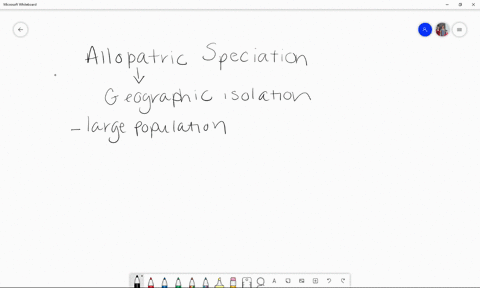 Microsoft Whiteboard
Allopatric Speciation
↓
Geographic isolation
- large population